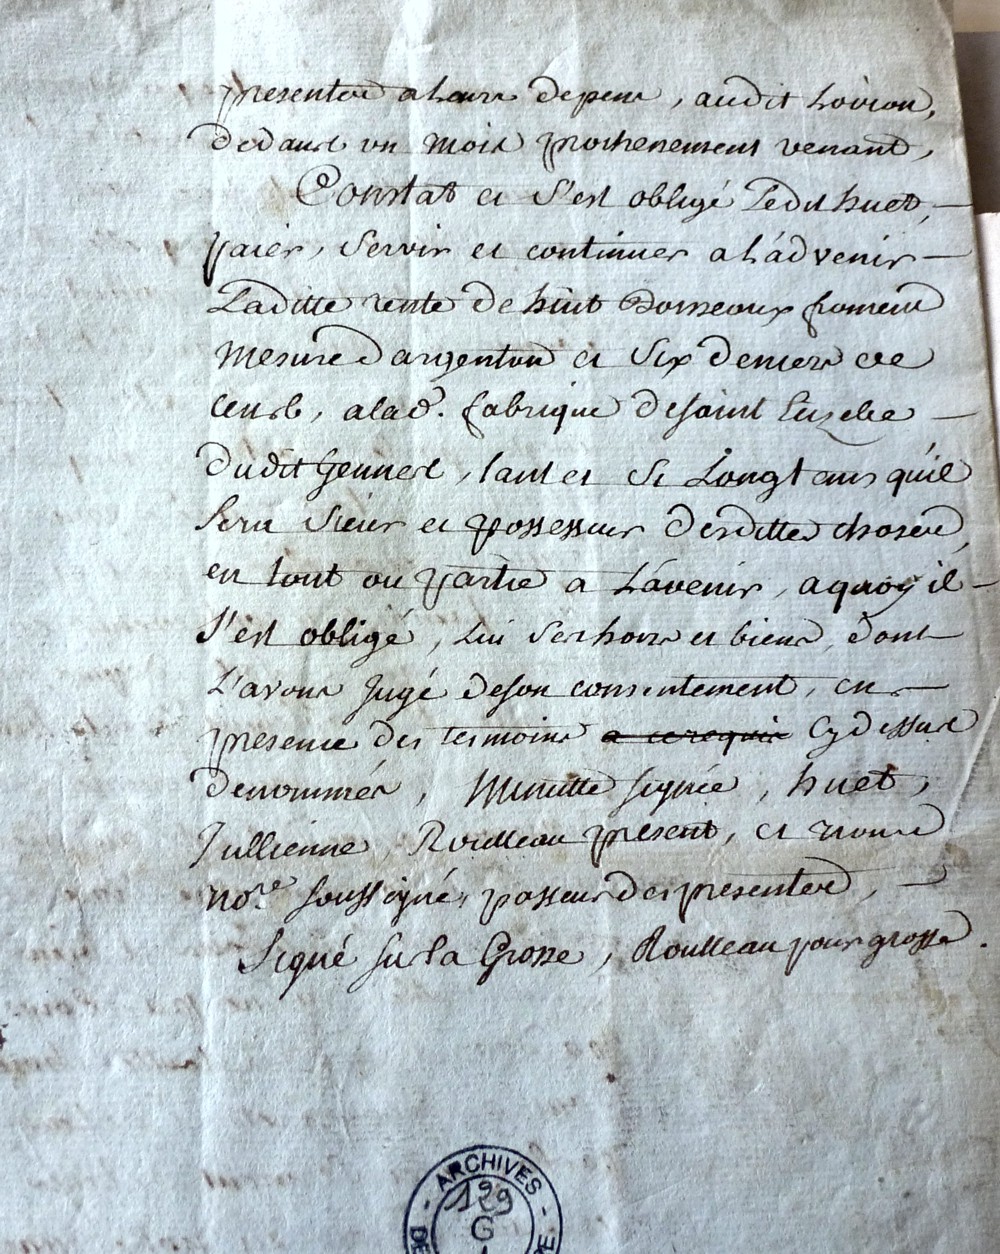 presentes a leurs depens, audit Loiron,
dedans un mois prochenement venant,
Constat et s'est obligé ledit huet,
paier, servir et continuer a l'advenir
Laditte rente de huit Boisseaux froment
mesure d'argenton et six deniers de
cens, alad. fabrique de saint Euzebe
dudit Gennes, tant et si Longtems qu'il
sera sieur et possesseur desdittes choses,
en tout ou partie a L'avenir, a quoy il
s'est obligé, lui ses hoirs et biens, dont
L'avons Jugé de son consentement, en
presence des temoins a ce requis Cy dessus
denommés, Minutte signée, huet,
Jullienne, Roulleau present, et nous
no.re soussigné, passeur des presentes,
Signé sur la Grosse, Roulleau pour grosse.
ARCHIVES
129
G